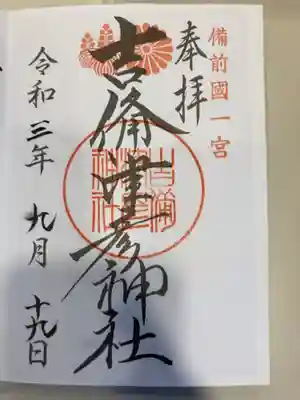 備前國一宮
奉拝
吉備津彦神社
吉備津彦神社
令和三年 九月 十九日